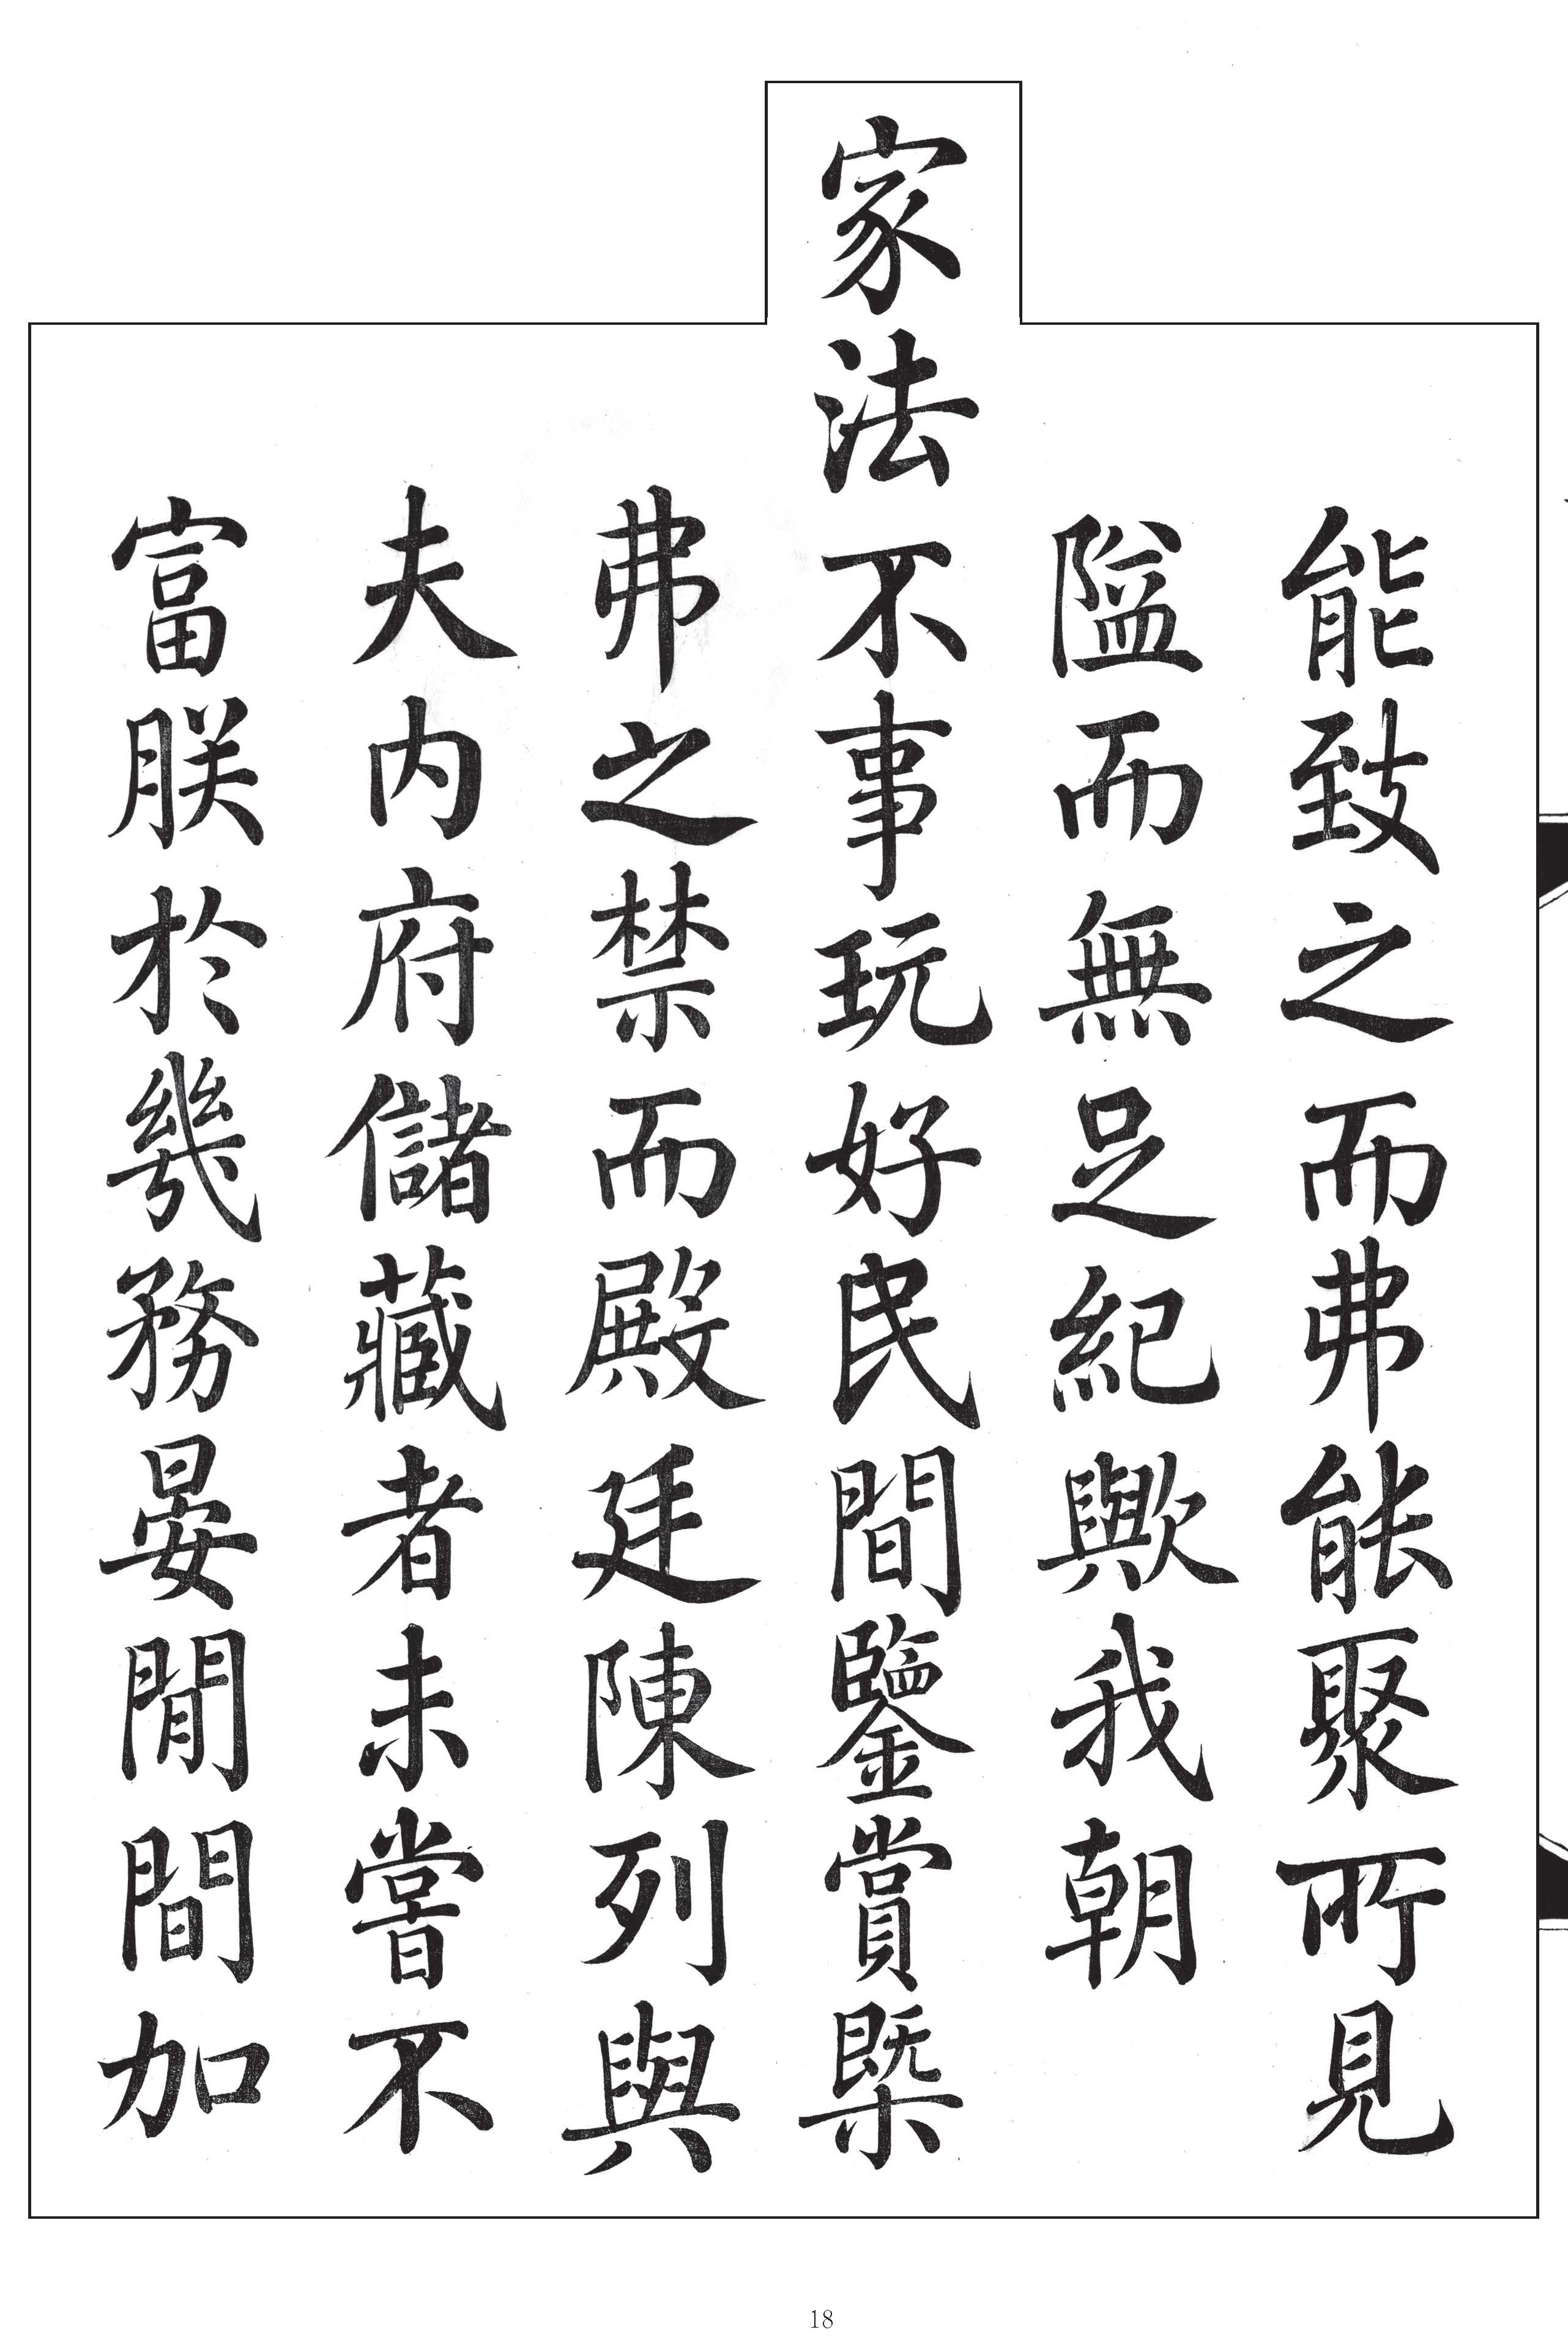 能致之而弗能聚所見
隘而無足紀歟我朝
家法不事玩好民間鑒賞槩
弗之禁而殿廷陳列與
夫内府儲藏者未嘗不
富朕於幾務晏閒間加
18